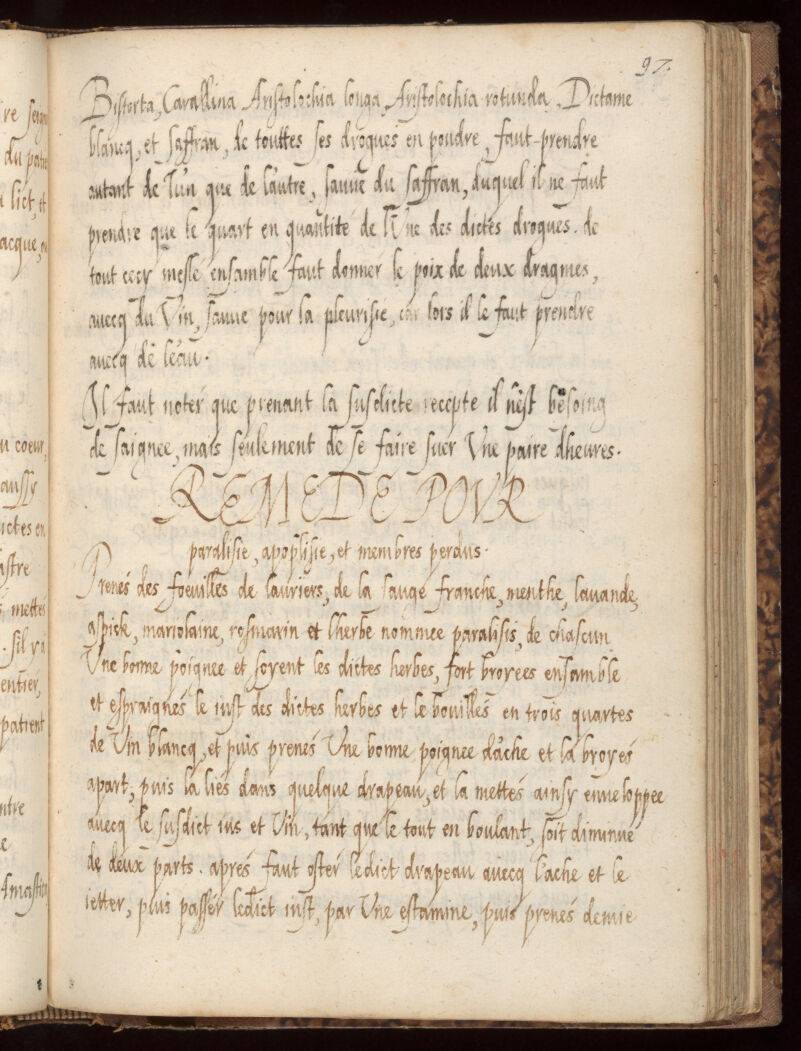 97.
Bistorta, Carallina Aristolochia longa, Aristolochia rotunda, Dictame
blancq, et saffran, de touttes ses drogues en poudre, faut-prendre
autant de l'un que de lautre, sauue du saffran, duquel il ne faut
prendre que le quart en quantité de l'Une des dictes drogues. de
tout cecy meslé ensamble faut donner le poix de deux dragmes,
auecq du Vin, sauue pour la pleurisie, car lors il le faut prendre
auecq de leau.
Il faut noter que prenant la susdicte recepte il nest besoing
de saignee, mais seulement de se faire suer Vne paire dheures.
REMEDE POVR
paralisie, apoplisie, et membres perdus.
Prenés des foeuilles de lauriers, de la sauge franche, menthe, lauande,
aspick, mariolaine, rosmarin et lherbe nommee paralisis, de chascun
Vne bonne poignee et soyent les dictes herbes, fort broyees ensamble
et espraignés le iust des dictes herbes et le bouillés en trois quartes
de Vin blancq, et puis prenés Vne bonne poignee dache et la broyés
apart, puis la liés dans quelque drapeau, et la mettés ainsy enueloppee
auecq le susdict ius et Vin, tant que le tout en boulant, soit diminué
de deux parts. apres faut oster ledict drapeau auecq lache et le
ietter, puis passer ledict iust, par Vne estamine, puis prenés demie
re
du
lict, et
acque,
u coeur,
aussy
ictes en
astre
mettés
sil y a
entier,
patient
ntre
e